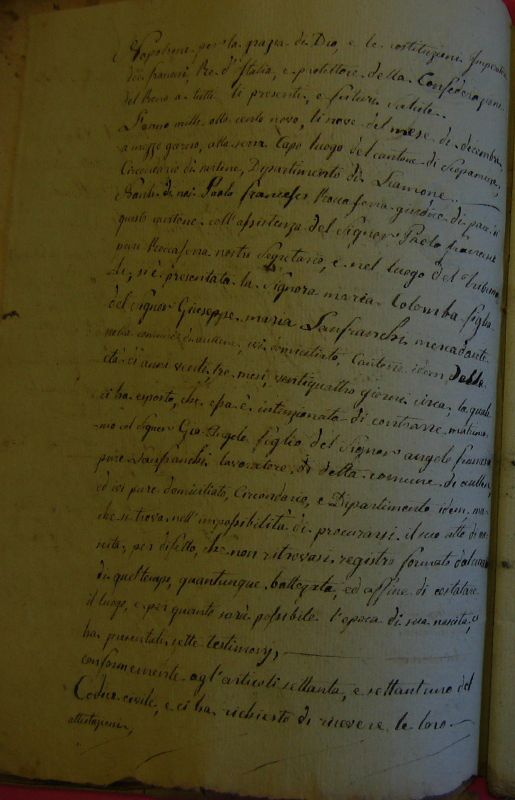 Napoleone per la grazia di Dio, e le costituzioni Imperator
dei francesi, Re d'Italia, e protettore della Confederazione
del Reno a tutti li presenti, e futuri salute.
L'anno mille otto cento nove, li nove del mese di decembre,
a mezzo giorno, alla serra Capo luogo del cantone di Scopamene,
Circondario di sartene, Dipartimento di Liamone.
Nanti di noi Paolo francesco Roccaserra giudice di pace in
questo cantone coll'assistenza del Signor Paolo
pure Roccaserra nostro Segretario, e nel luogo del tribuna
le, si è presentata la Signora maria Colomba figlia
del Signor Giuseppe maria Lanfranchi mercadante
nella comune d'aullene, ivi domiciliato, Cantone idem dalla
età di anni venti, tre mesi, ventiquattro giorni circa, la quale
ci ha esposto, che essa è intenzionata di contrarre matrimo-
nio col Signor Gio Angelo figlio del Signor angelo francesco
pure Lanfranchi lavoratore di detta comune di aullene,
ed ivi pure domiciliato, Circondario, e Dipartimento idem, ma
che si trova nell'impossibilità di procurarsi il suo atto di na-
scita, per difetto, che non ritrovasi registro formato
di quel tempo, quantunque battezzata, ed affine di costatare
il luogo, e per quanto sarà possibile l'epoca di sua nascita, ci
ha presentati sette testimonj,
conformemente agl'articoli settanta, e settant'uno del
Codice civile, e ci ha richiesto di ricevere le loro
attestazioni,